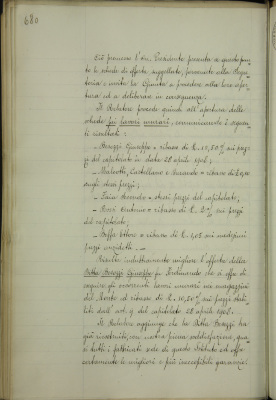 680
Ciò premesso l'On. Presidente presenta a questo pun-
to le schede di offerta, suggellate, pervenute alla Segre-
teria e invita la Giunta a procedere alla loro aper-
tura ed a deliberare in conseguenza.
Il Relatore procede quindi all'apertura delle
schede pei lavori murari, comunicandone i seguen-
ti risultati:
- Barozzi Giuseppe = ribasso di £. 10,50 % sui prez-
zi del capitolato in data 28 aprile 1906;
- Mariotti, Castellano e = ribasso di £
sugli stessi prezzi;
- stessi prezzi del capitolato;
- Rossi = ribasso di £. % sui prezzi
del capitolato;
- Baffa Ettore = ribasso di £. 1,05 sui medesimi
prezzi anzidetti. -
Risulta indubbiamente migliore l'offerta della
Ditta Barozzi Giuseppe fu Ferdinando che si offre di
eseguire gli occorrenti lavori murari nei magazzini
del col ribasso di £. 10,50 % sui prezzi stabi-
liti dall'art. 9 del capitolato 28 aprile 1906.
Il Relatore aggiunge che la Ditta Barozzi ha
già con nostra piena soddisfazione, qua-
si tutti i fabbricati sede di questo Istituto ed offre
certamente le migliori e più ineccepibili garanzie.